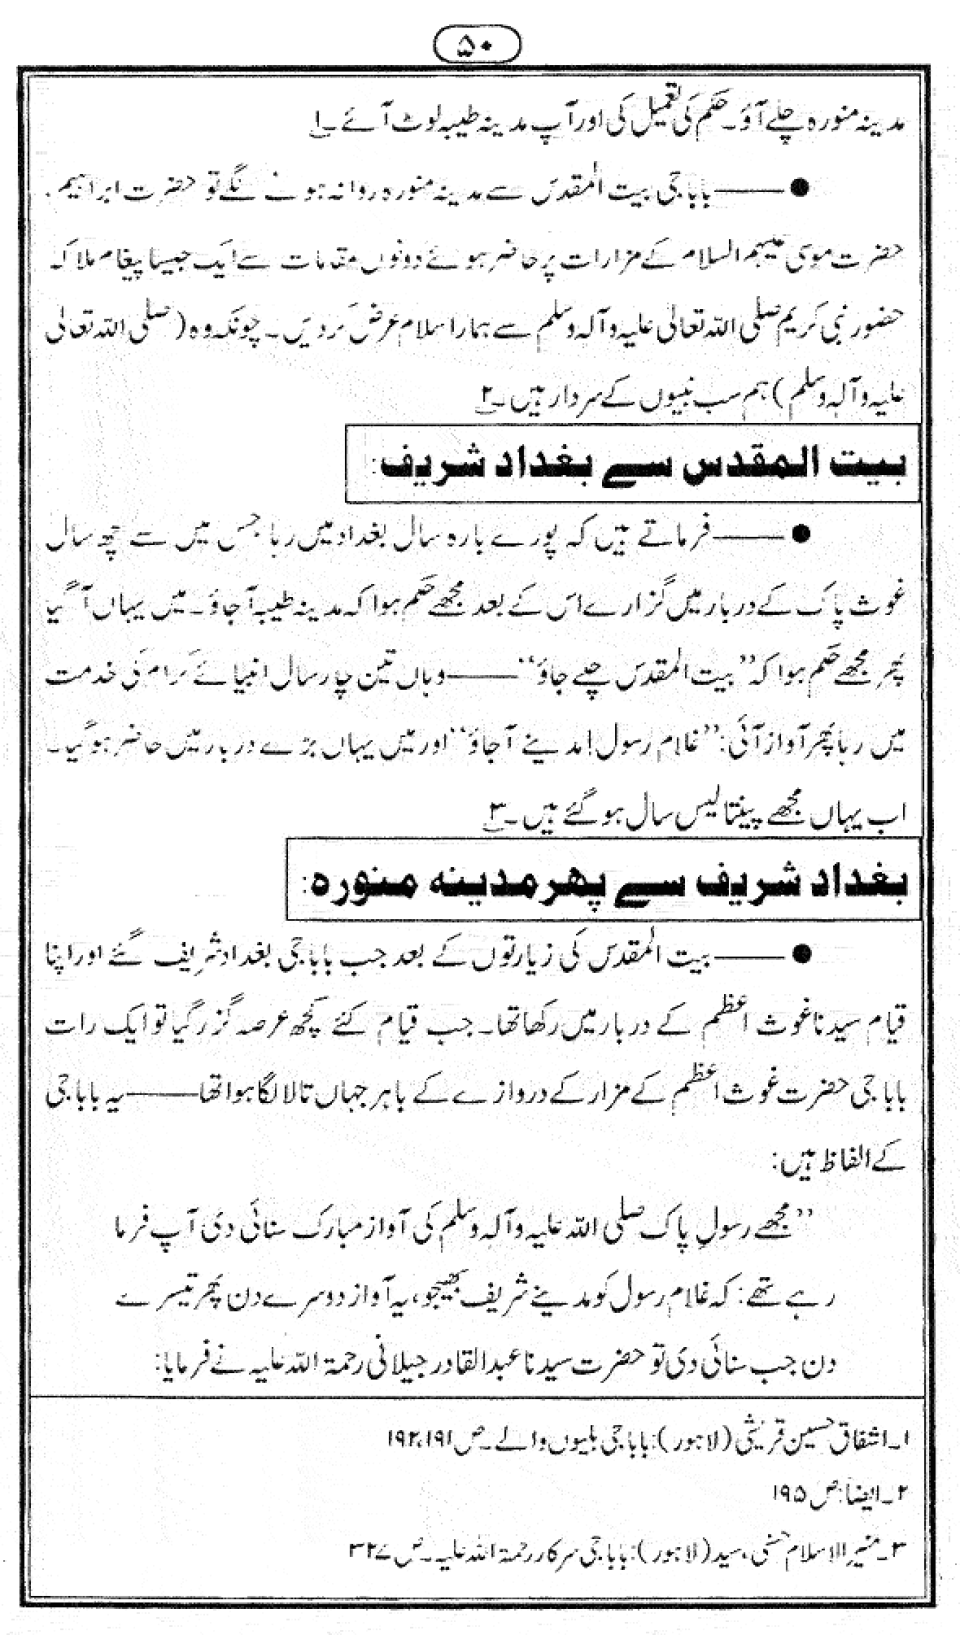 ۵۰
مدینہ منورہ چلے آؤ۔ حکم کی تعمیل کی اور آپ مدینہ طیبہ لوٹ آئے۔۱
●——— باباجی بیت المقدس سے مدینہ منورہ روانہ ہونے لگے تو حضرت ابراہیم،
حضرت موسیٰ علیہم السلام کے مزارات پر حاضر ہوئے دونوں مقامات سے ایک جیسا پیغام ملا کہ
حضور نبی کریم صلی اللہ تعالیٰ علیہ وآلہ وسلم سے ہمارا سلام عرض کردیں۔ چونکہ وہ (صلی اللہ تعالیٰ
علیہ وآلہ وسلم) ہم سب نبیوں کے سردار ہیں۔۲
بیت المقدس سے بغداد شریف:
●——— فرماتے ہیں کہ پورے بارہ سال بغداد میں رہا جس میں سے چھ سال
غوث پاک کے دربار میں گزارے اس کے بعد مجھے حکم ہوا کہ مدینہ طیبہ آجاؤ۔ میں یہاں آگیا
پھر مجھے حکم ہوا کہ ’’بیت المقدس چلے جاؤ‘‘——— وہاں تین چار سال انبیائے کرام کی خدمت
میں رہا پھر آواز آئی: ’’غلام رسول! مدینے آجاؤ‘‘ اور میں یہاں بڑے دربار میں حاضر ہوگیا۔
اب یہاں مجھے پینتالیس سال ہوگئے ہیں۔۳
بغداد شریف سے پھر مدینہ منورہ:
●——— بیت المقدس کی زیارتوں کے بعد جب باباجی بغداد شریف گئے اور اپنا
قیام سیدنا غوث اعظم کے دربار میں رکھا تھا۔ جب قیام کئے کچھ عرصہ گزر گیا تو ایک رات
باباجی حضرت غوث اعظم کے مزار کے دروازے کے باہر جہاں تالا لگا ہوا تھا——— یہ باباجی
کے الفاظ ہیں:
’’مجھے رسولِ پاک صلی اللہ علیہ وآلہ وسلم کی آواز مبارک سنائی دی آپ فرما
رہے تھے: کہ غلام رسول کو مدینے شریف بھیجو، یہ آواز دوسرے دن پھر تیسرے
دن جب سنائی دی تو حضرت سیدنا عبدالقادر جیلانی رحمۃ اللہ علیہ نے فرمایا:
۱۔ اشفاق حسین قریشی (لاہور): باباجی بلیوں والے۔ ص ۱۹۲،۱۹۱
۲۔ ایضاً: ص ۱۹۵
۳۔ منیر الاسلام حسنی، سید (لاہور): باباجی سرکار رحمۃ اللہ علیہ۔ ص ۳۲۷